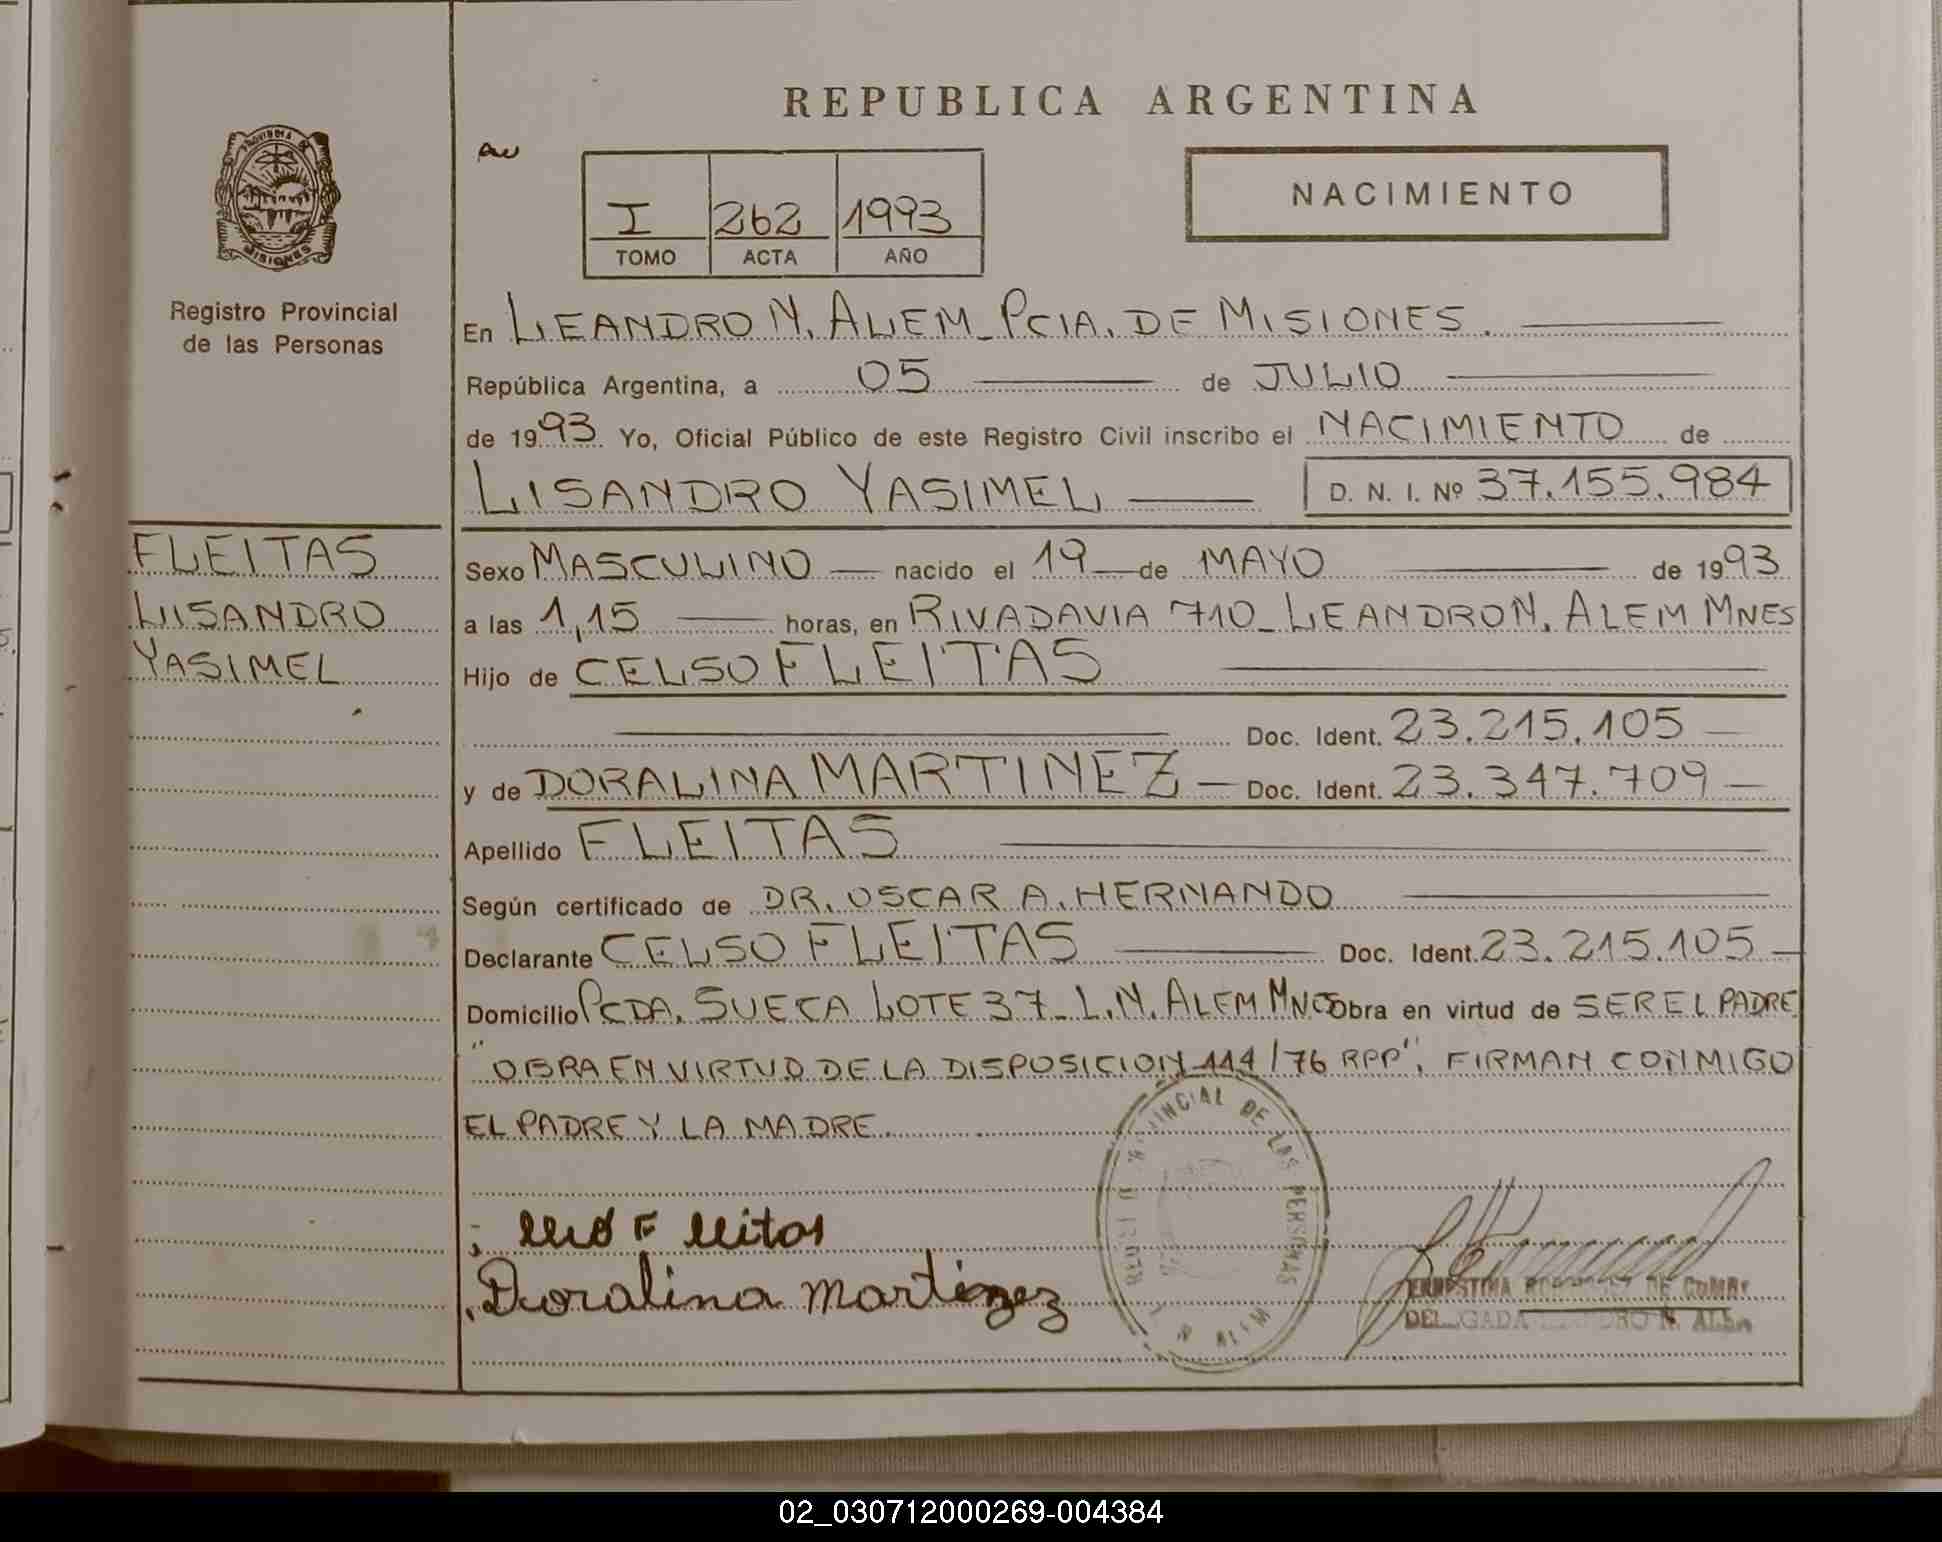 REPUBLICA ARGENTINA
PROVINCIA DE
MISIONES
Registro Provincial
de las Personas
I 262 1993
TOMO ACTA AÑO
NACIMIENTO
En LEANDRO N. ALEM_PCIA. DE MISIONES.
República Argentina, a 05 de JULIO
de 1993. Yo, Oficial Público de este Registro Civil inscribo el NACIMIENTO de
LISANDRO YASIMEL D. N. I. Nº 37.155.984
FLEITAS
LISANDRO
YASIMEL
Sexo MASCULINO nacido el 19 de MAYO de 1993
a las 1,15 horas, en RIVADAVIA 710_LEANDRO N. ALEM MNES
Hijo de CELSO FLEITAS
Doc. Ident. 23.215.105
y de DORALINA MARTINEZ Doc. Ident. 23.347.709
Apellido FLEITAS
Según certificado de DR. OSCAR A. HERNANDO
Declarante CELSO FLEITAS Doc. Ident. 23.215.105
Domicilio PCDA. SUECA LOTE 37_L.N. ALEM MNES Obra en virtud de SER EL PADRE
"OBRA EN VIRTUD DE LA DISPOSICION 114/76 RPP", FIRMAN CONMIGO
EL PADRE Y LA MADRE
Doralina Martinez
DE LAS PERSONAS
02_030712000269-004384